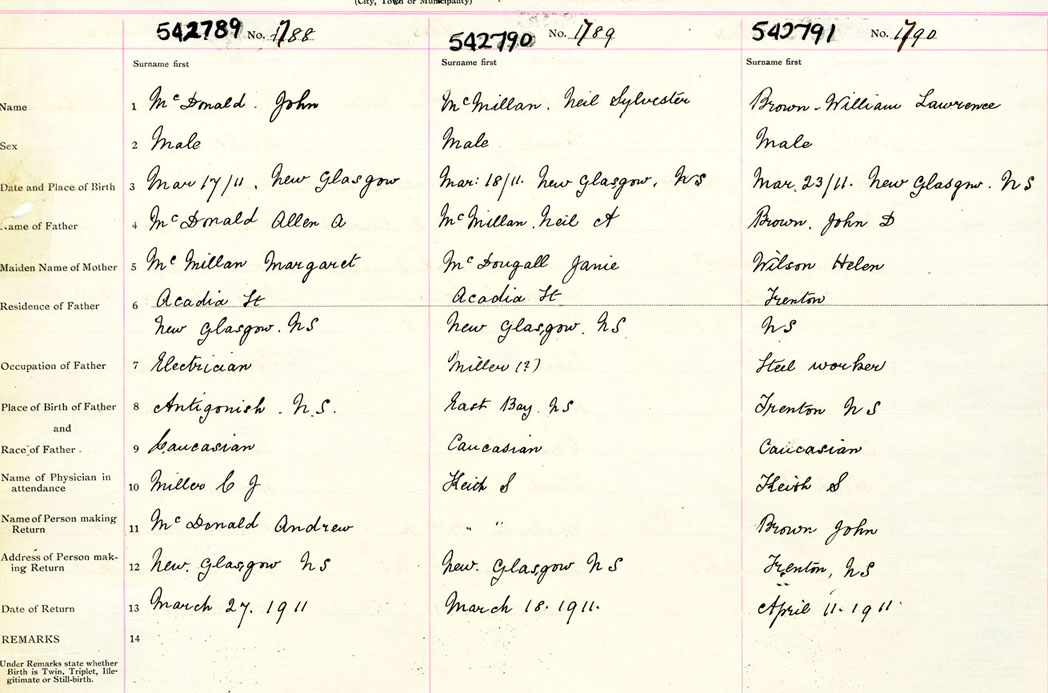 (City, Town or Municipality)
542789 No. 1788 542790 No. 1789 542791 No. 1790
Surname first Surname first Surname first
Name 1 McDonald. John McMillan. Neil Sylvester Brown - William Lawrence
Sex 2 Male Male Male
Date and Place of Birth 3 Mar 17/11. New Glasgow Mar: 18/11. New Glasgow. NS Mar. 23/11. New Glasgow. NS
Name of Father 4 McDonald Allen A McMillan. Neil A Brown. John D
Maiden Name of Mother 5 McMillan Margaret McDougall Janie Wilson Helen
Residence of Father 6 Acadia St Acadia St Trenton
New Glasgow. NS New Glasgow. NS NS
Occupation of Father 7 Electrician Miller (?) Steel worker
Place of Birth of Father 8 Antigonish. N.S. East Bay. NS Trenton NS
and
Race of Father. 9 Caucasian Caucasian Caucasian
Name of Physician in
attendance 10 Miller C J Keith S Keith S
Name of Person making
Return 11 McDonald Andrew " " Brown John
Address of Person mak-
ing Return 12 New. Glasgow NS New. Glasgow NS Trenton, NS
Date of Return 13 March 27. 1911 March 18. 1911. April 11. 1911.
REMARKS 14
Under Remarks state whether
Birth is Twin, Triplet, Ille-
gitimate or Still-birth.